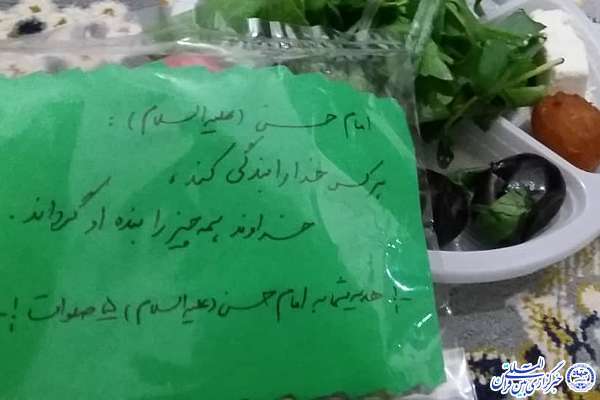 امام حسن (علیه السلام) :
هر کس خدا را بندگی کند ،
خداوند همه چیز را بنده او گرداند .
-!- هدیه شما به امام حسن (علیه السلام) ۵ صلوات -!-
خبرگزاری بین المللی قرآن